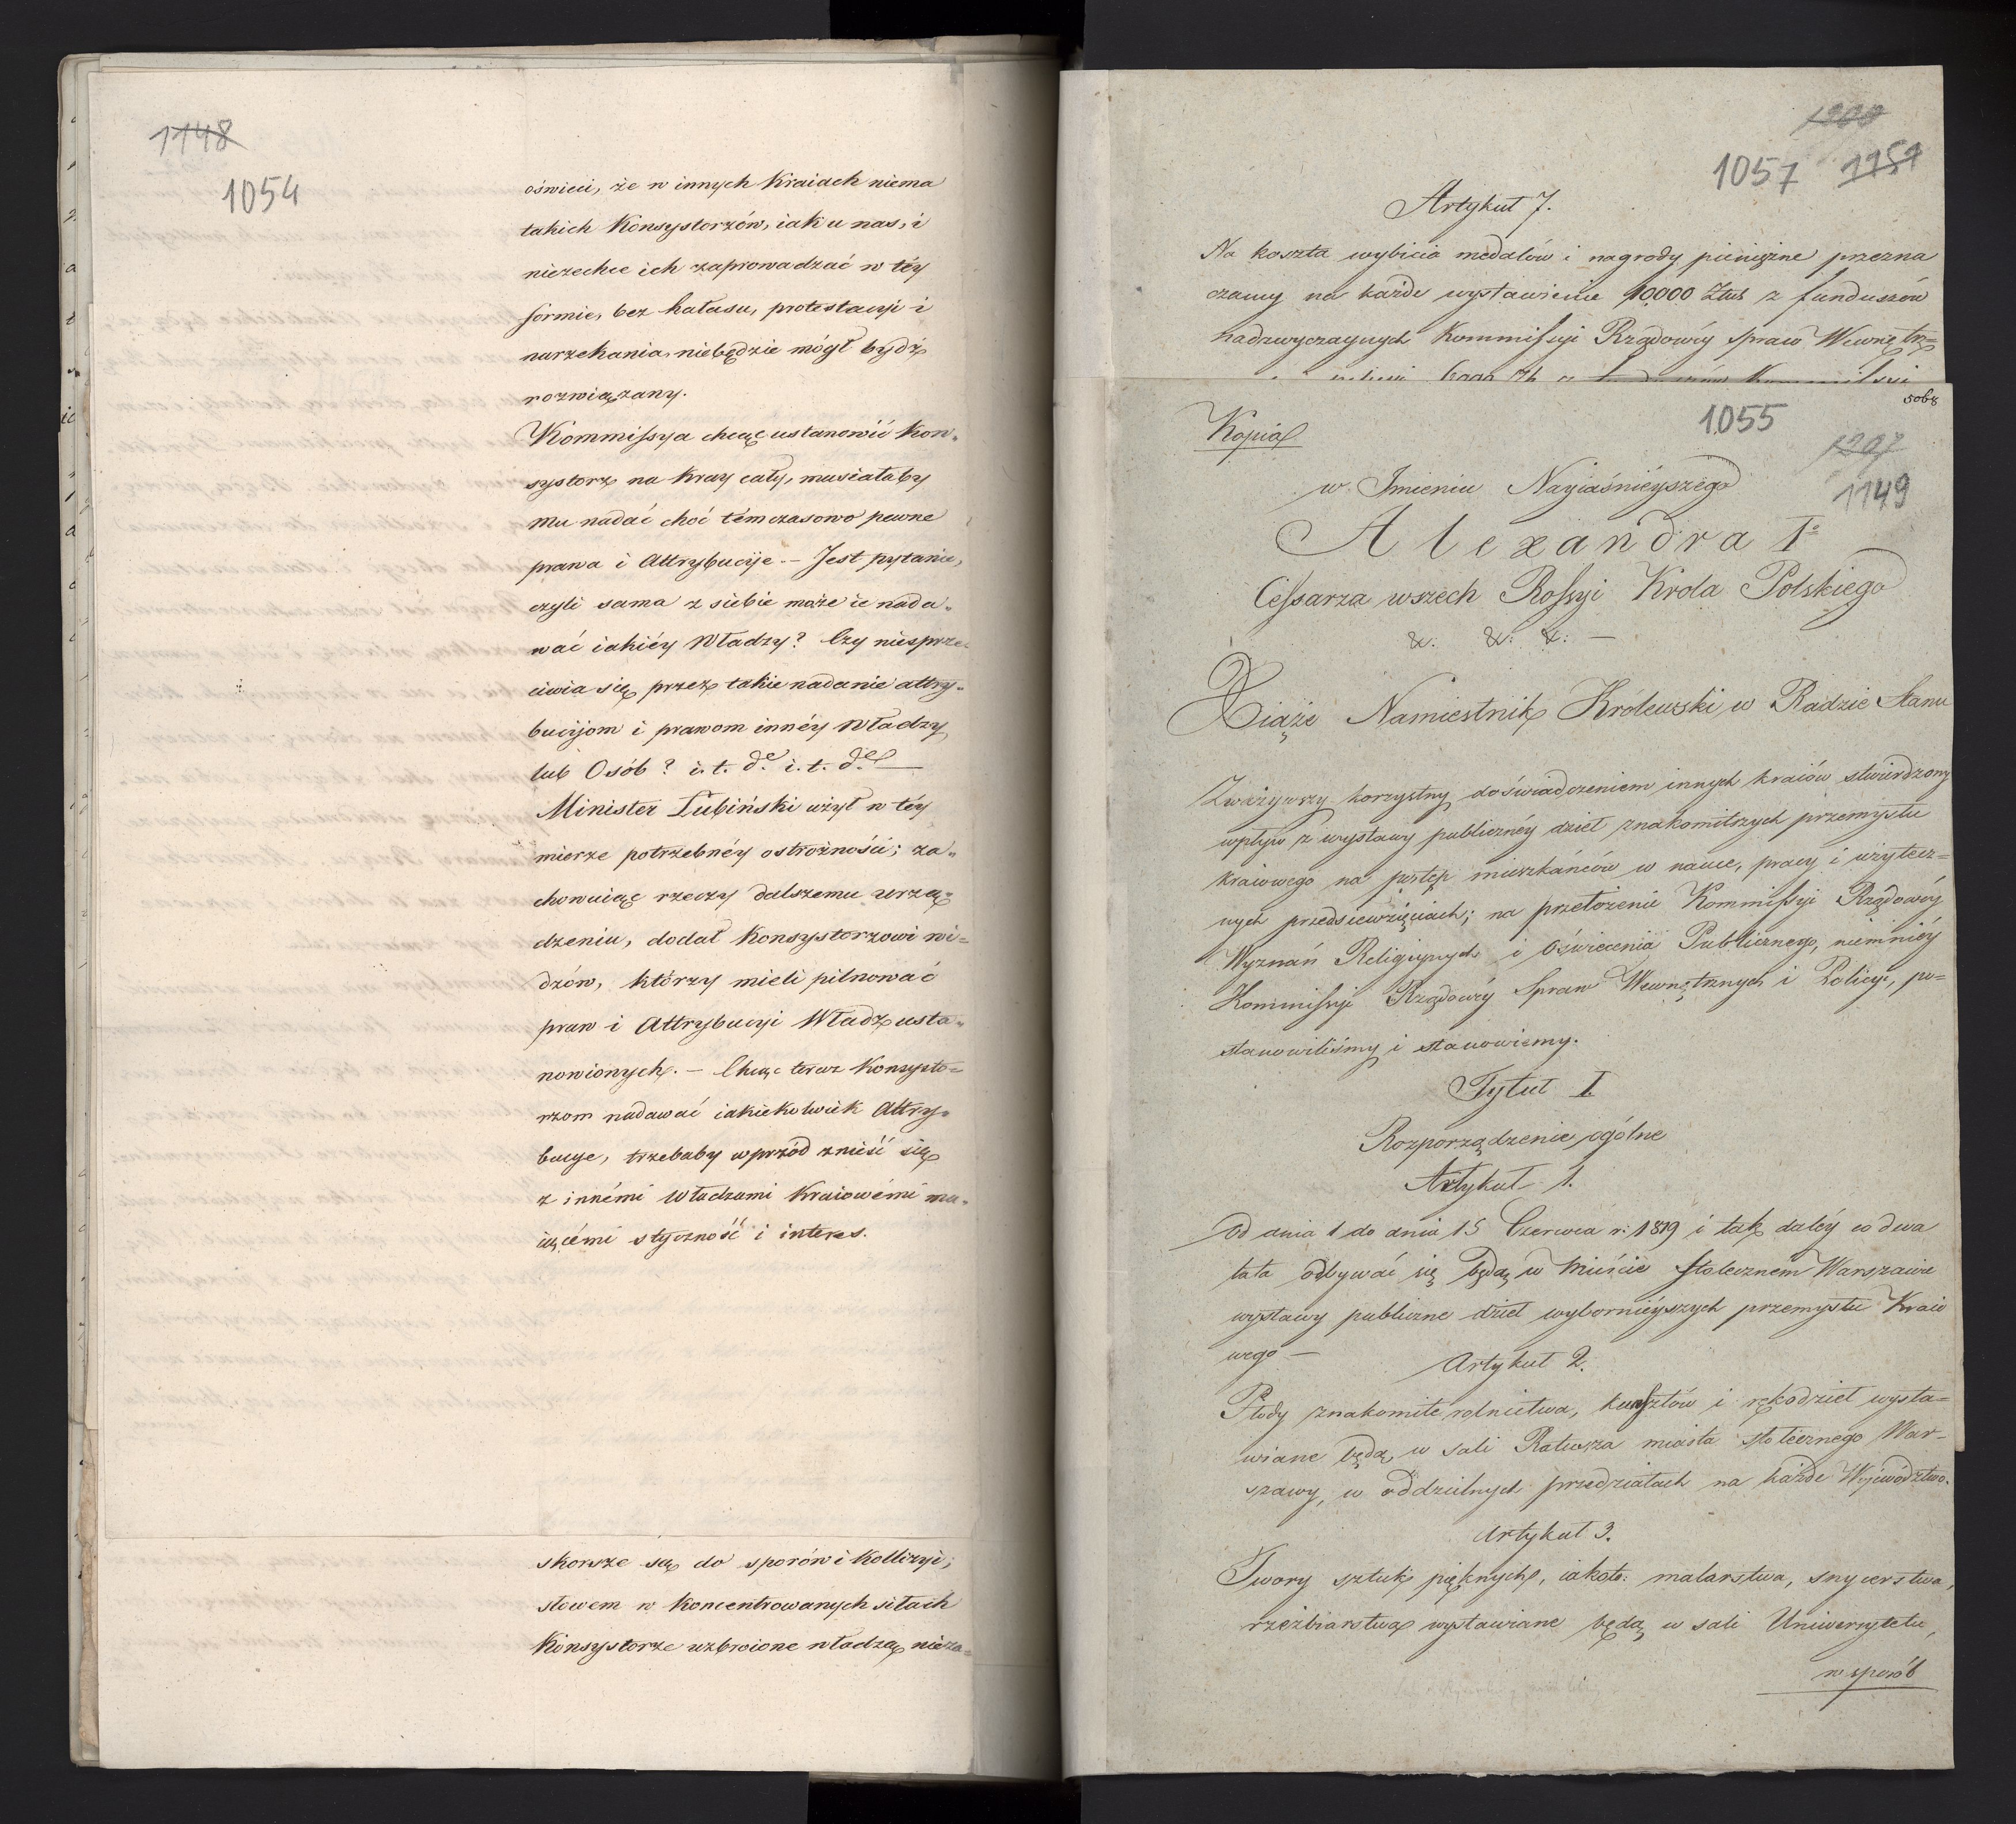 1148
1054
oświeci, że w innych Kraiach niema
takich Konsystorzów, iak u nas, i
niezechce ich zaprowadzać w téy
formie, bez hałasu, protestacyi i
narzekania, niebędzie mógł bydź
rozwiązany.
Kommissya chcąc ustanowić Kon-
systorz na Kray cały, musiałaby
mu nadać choć témczasowo pewne
prawa i Attrybucije. – Jest pytanie,
czyli sama z siebie może ie nada-
wać iakiéy Władzy? Czy niesprze-
ciwia się przez takie nadanie attry-
bucijom i prawom innéy Władzy
lub Osób? i. t. d. i. t. d.
Minister Łubiński użył w téy
mierze potrzebnéy ostrożności; za-
chowuiąc rzeczy dalszemu urzą-
dzeniu, dodał Konsystorzowi wi-
dzów, którzy mieli pilnować
praw i Attrybucyi Władz usta-
nowionych. – Chcąc teraz Konsysto-
rzom nadawać iakiekolwiek Attry-
bucye, trzebaby wprzód znieść się
z innémi Władzami Kraiowémi ma-
iącémi styczność i interes.
skorsze są do sporów i Kollizyi;
słowem w Koncentrowanych siłach
Konsystorze uzbroione władzą nieza-
1200
1057 1151
Artykuł 7.
Na koszta wybicia medalów i nagrody pieniężne przezna
czamy na każde wystawienie 10,000 Złtch z funduszów
nadzwyczaynych Kommissyi Rządowéy Spraw Wewnętrz-
5068
1055
1207
1149
Kopia
w Imieniu Nayiaśnieyszego
Alexandra Iº
Cessarza wszech Rossyi Krola Polskiego
&. &: &: –
Xiąże Namiestnik Królewski w Radzie Stanu
Zważywszy korzystny doświadczeniem innych kraiów stwierdzony
wpływ z wystawy publicznéy dzieł znakomitszych przemysłu
kraiowego na postęp mieszkańców w nauce, pracy i użytecz-
nych przedsiewzięciach; na przełożenie Kommissyi Rządowéy
Wyznań Religiynych i Oświecenia Publicznego, niemniéy
Kommissyi Rządowéy Spraw Wewnętrznych i Policyi, po-
stanowiliśmy i stanowiemy.
Tytuł I
Rozporządzenie ogólne
Artykuł 1.
Od dnia 1 do dnia 15 Czerwca r: 1819 i tak daléy co dwa
lata odbywać się będą w Mieście Stołecznem Warszawie
wystawy publiczne dzieł wybornieyszych przemysłu Kraio
wego –
Artykuł 2.
Płody znakomite rolnictwa, kunsztów i rękodzieł wysta-
wiane będą w sali Ratusza miasta stołecznego War-
szawy, w oddzielnych przedziałach na każde Województwo.
Artykuł 3.
Twory sztuk pięknych, iakoto: malarstwa, snycerstwa,
rzeźbiarstwa wystawiane będą w sali Uniwersytetu,
w sposób